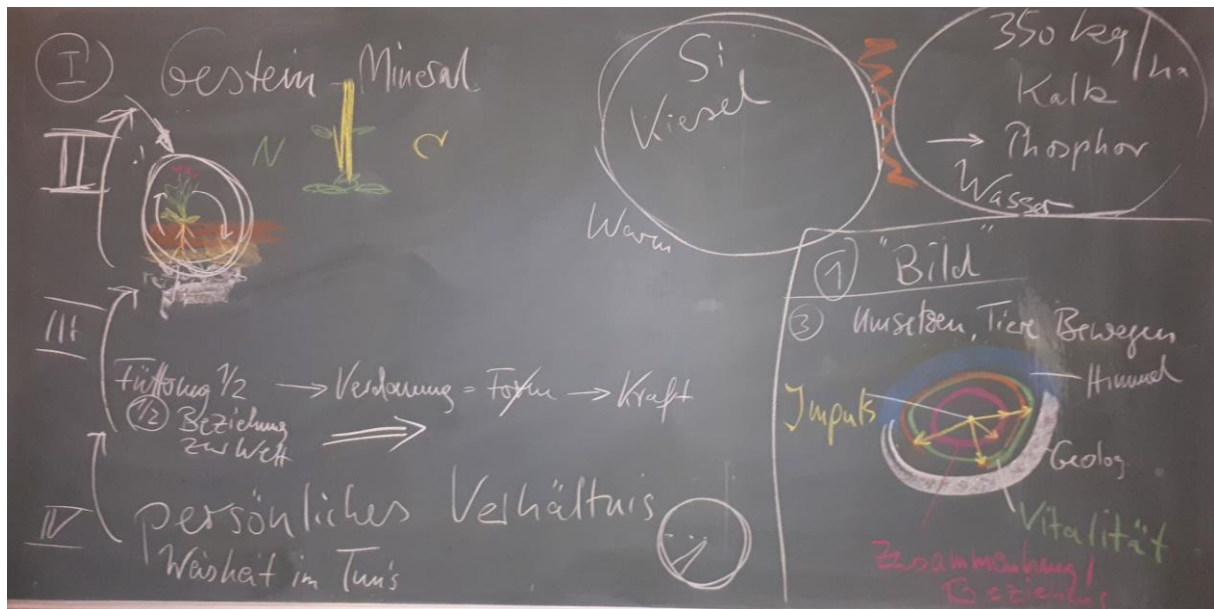 I Gestein - Mineral
II
N C
III
Fütterung 1/2 → Verdauung = Form → Kraft
1/2 Beziehung
zur Welt
IV persönliches Verhältnis
Weisheit im Tun
Si
Kiesel
Warm
350 kg/ha
Kalk
→ Phosphor
Wasser
1 "Bild"
3 Umsetzen, Tiere Bewegen
Himmel
Impuls
Geolog.
Vitalität
Zusammenhang/
Beziehung